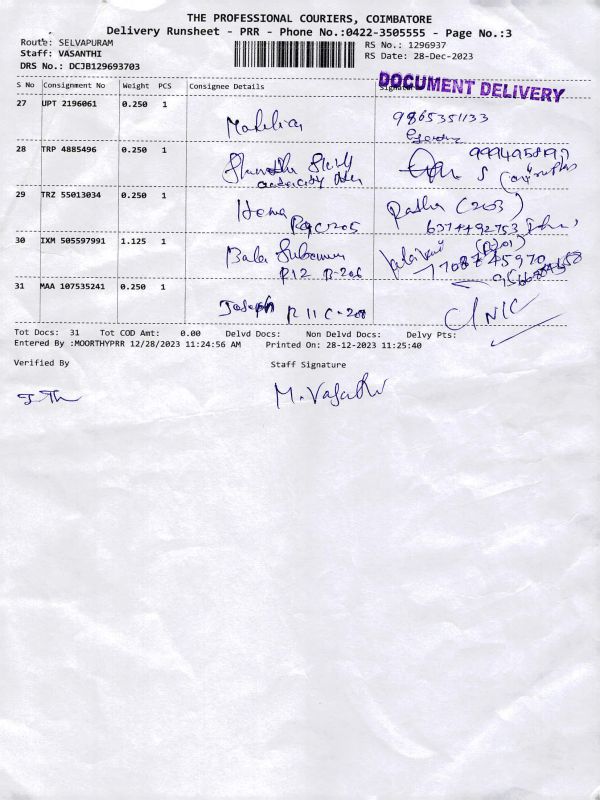 THE PROFESSIONAL COURIERS, COIMBATORE
Delivery Runsheet - PRR - Phone No.:0422-3505555 - Page No.:3
Route: SELVAPURAM
RS No.: 1296937
Staff: VASANTHI
RS Date: 28-Dec-2023
DRS No.: DCJB129693703
DOCUMENT DELIVERY
S No Consignment No Weight PCS Consignee Details Signature
27 UPT 2196061 0.250 1
9865351133
28 TRP 4885496 0.250 1
29 TRZ 55013034 0.250 1 Hema Radha (203)
6374492753
30 IXM 505597991 1.125 1 Bala
R12 B-206 7708745970
31 MAA 107535241 0.250 1 Joseph R 11 C-208 C/NIC
Tot Docs: 31 Tot COD Amt: 0.00 Delvd Docs: Non Delvd Docs: Delvy Pts:
Entered By :MOORTHYPRR 12/28/2023 11:24:56 AM Printed On: 28-12-2023 11:25:40
Verified By Staff Signature
M. Vasanthi